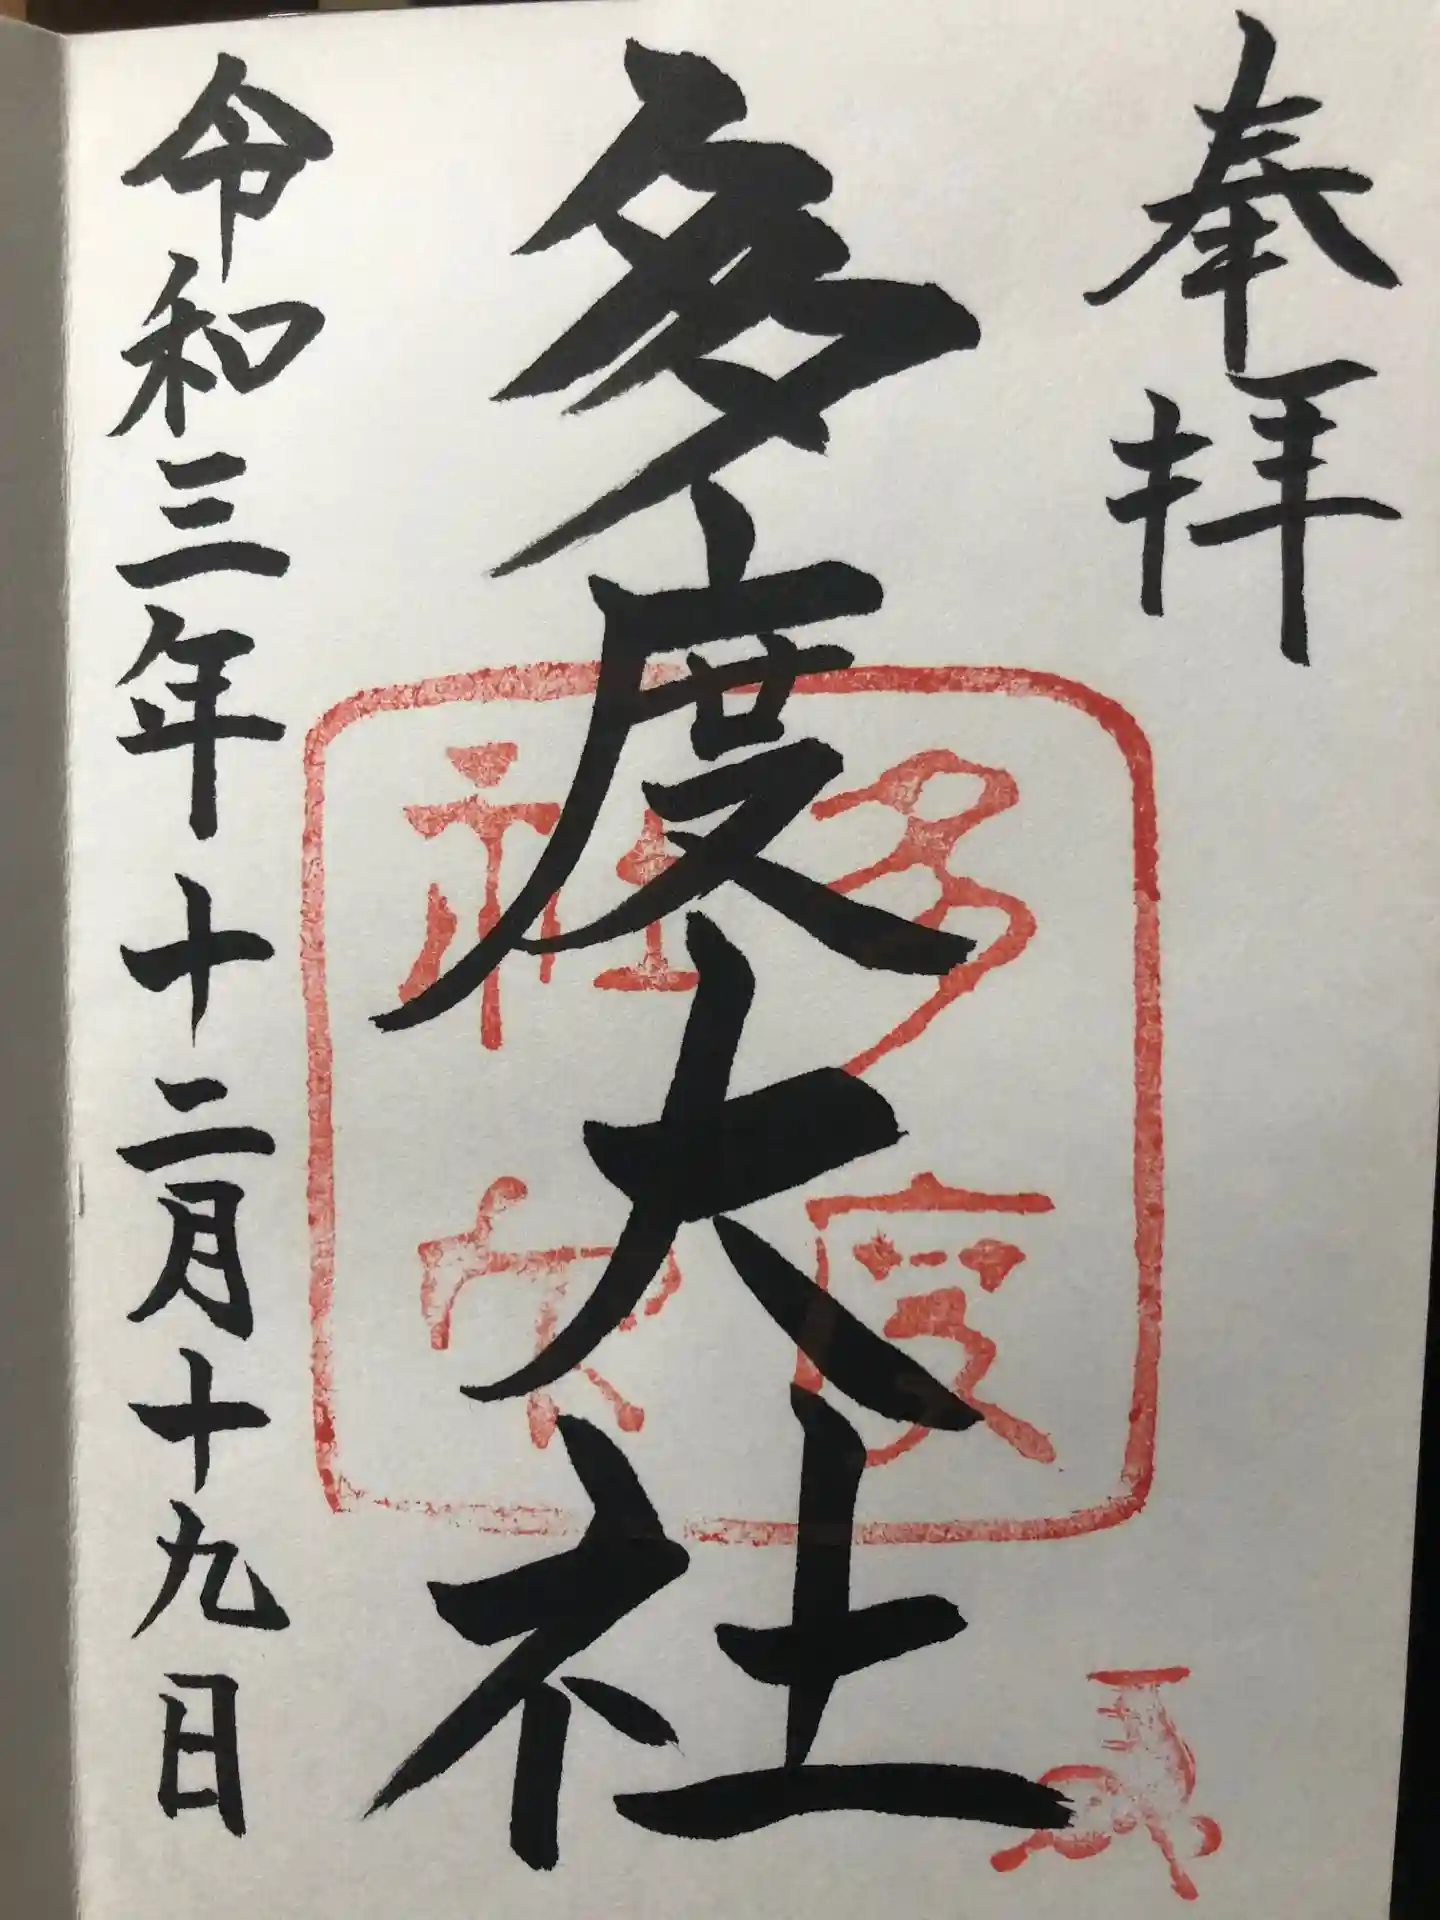 奉拝
多度大社
多度
社
令和三年十二月十九日